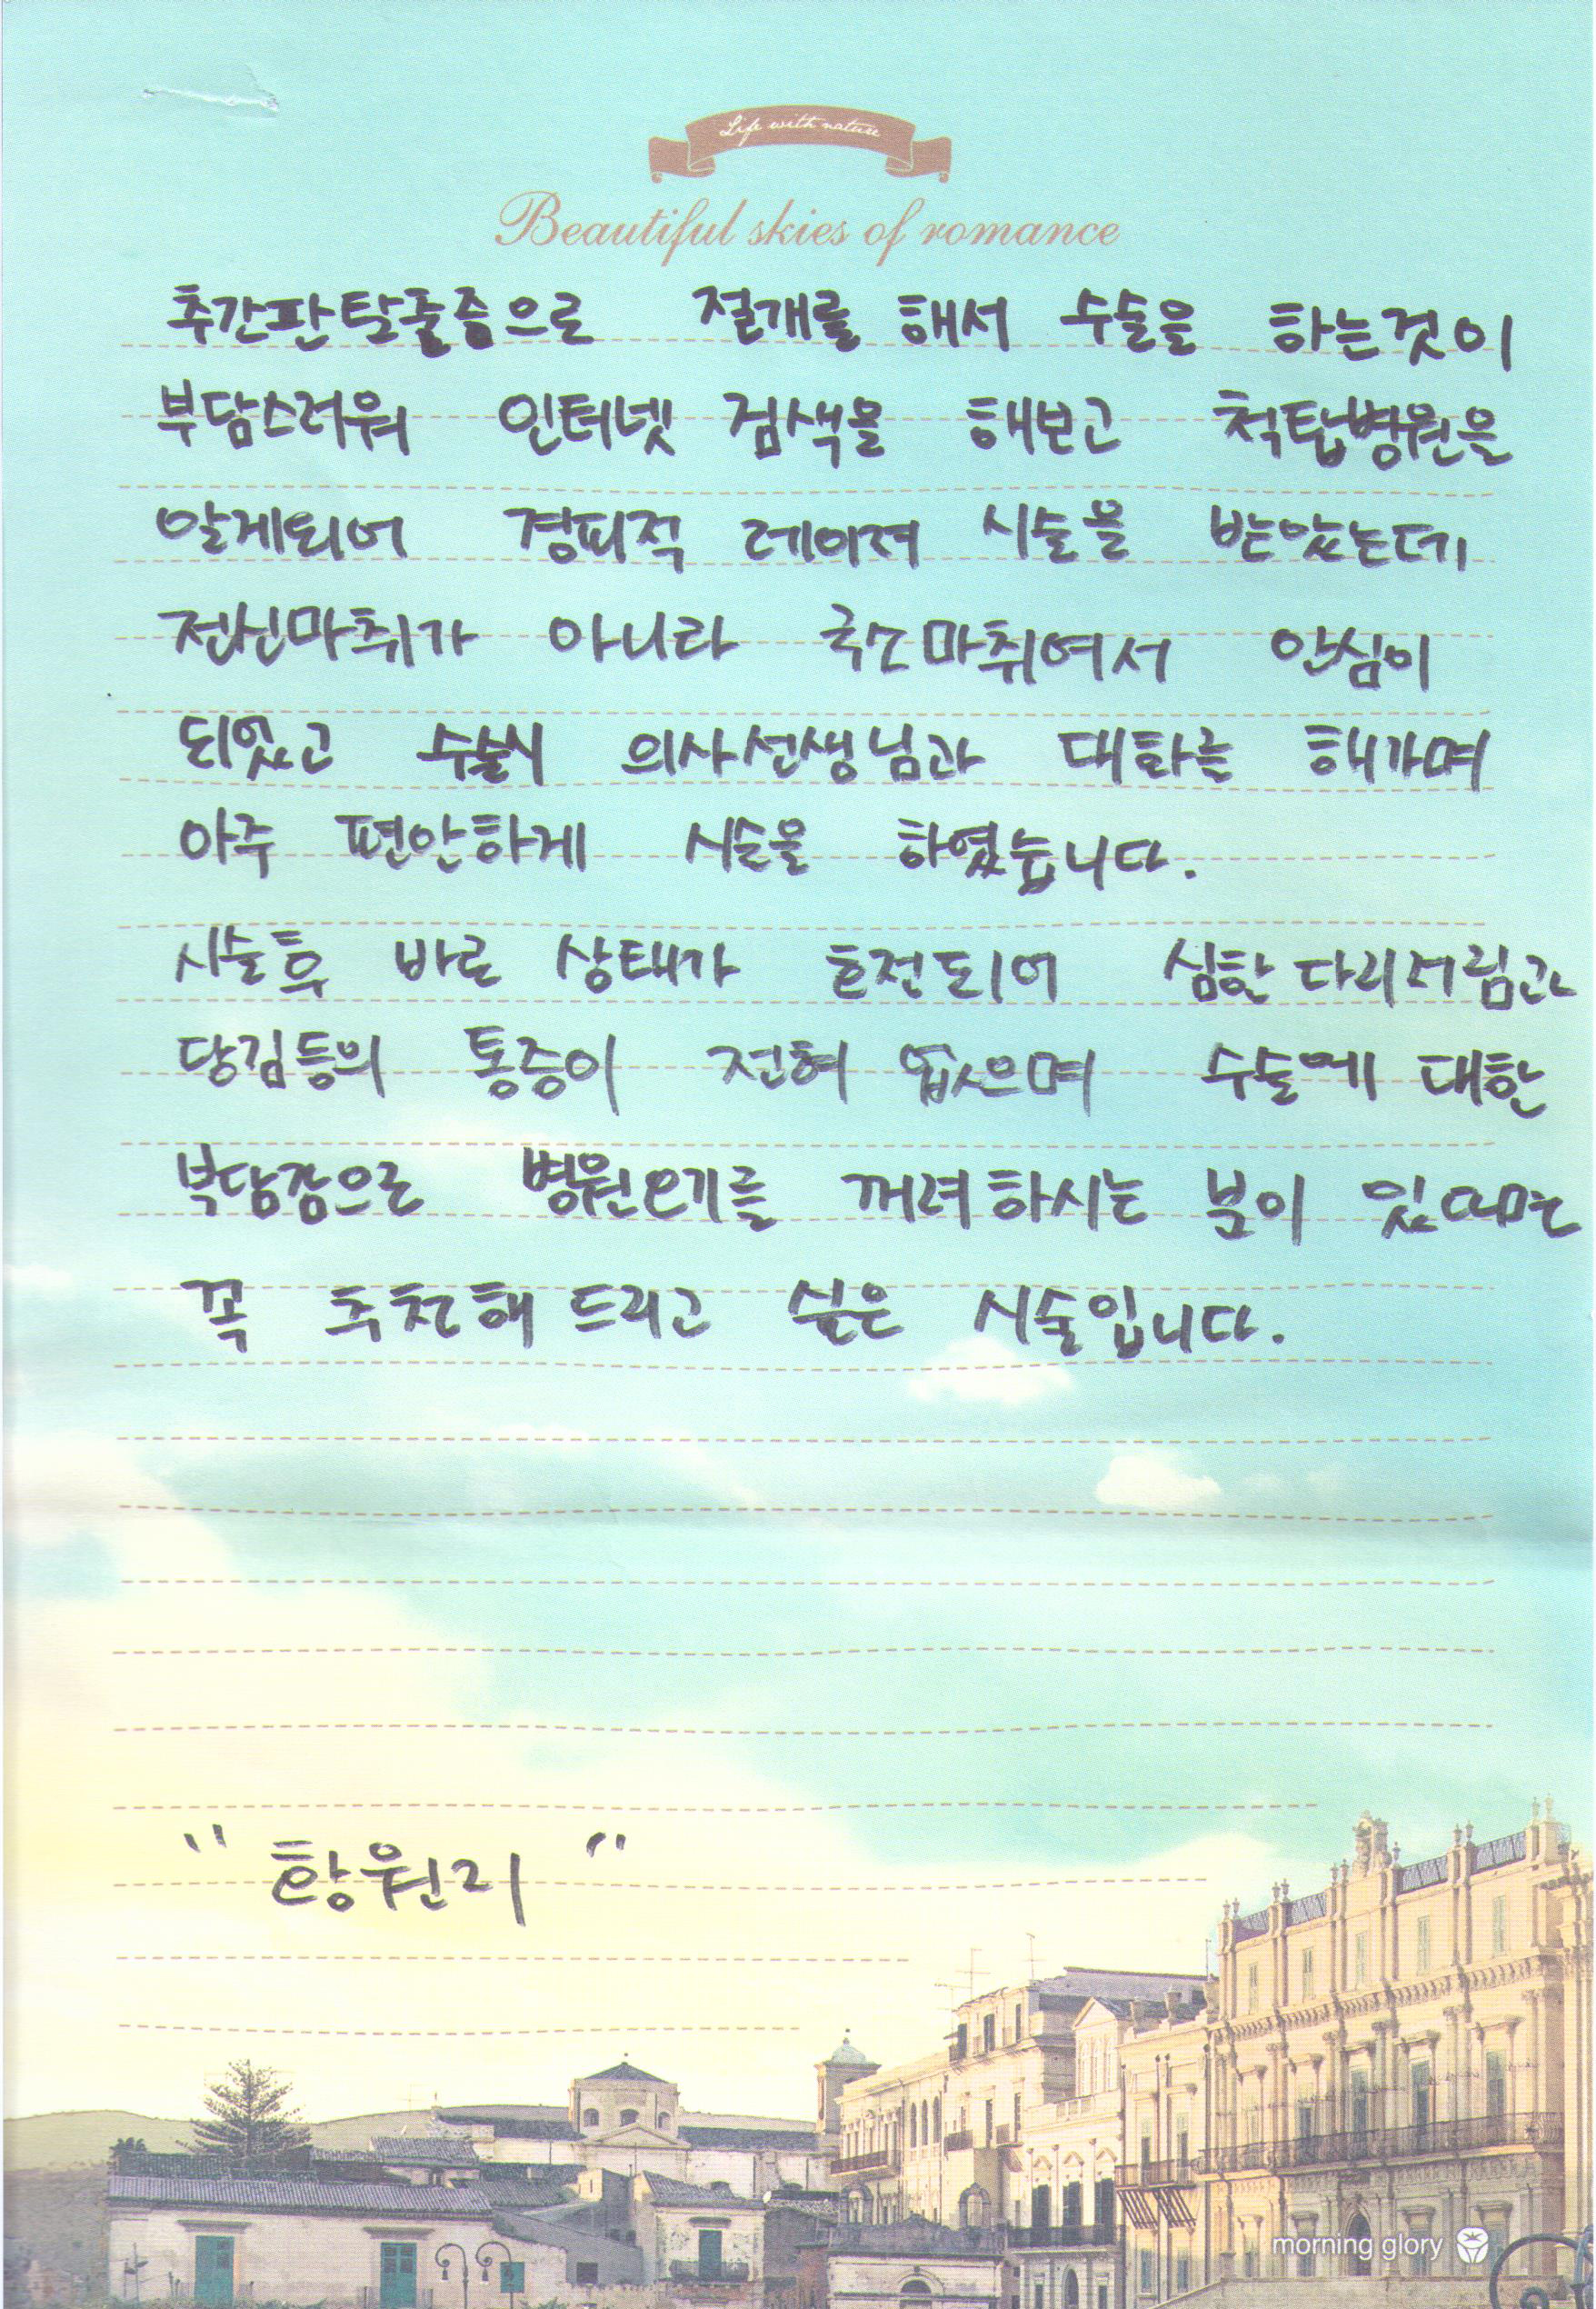 Life with nature
Beautiful skies of romance
추간판탈출증으로 절개를 해서 수술을 하는것이
부담스러워 인터넷 검색을 해보고 척탑병원을
알게되어 경피적 레이져 시술을 받았는데
전신마취가 아니라 국소마취여서 안심이
되었고 수술시 의사선생님과 대화를 해가며
아주 편안하게 시술을 하였습니다.
시술후 바로 상태가 호전되어 심한 다리저림과
당김등의 통증이 전혀 없으며 수술에 대한
부담감으로 병원오기를 꺼려하시는 분이 있다면
꼭 추천해 드리고 싶은 시술입니다.
" 황원리 "
morning glory